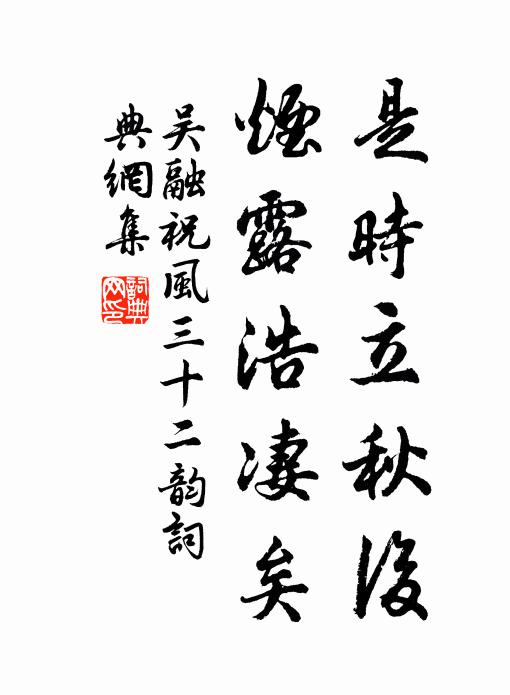 是時立秋後
煙露浩淒矣
吴融祝風三十二韵詞
典網集
詞典
网印